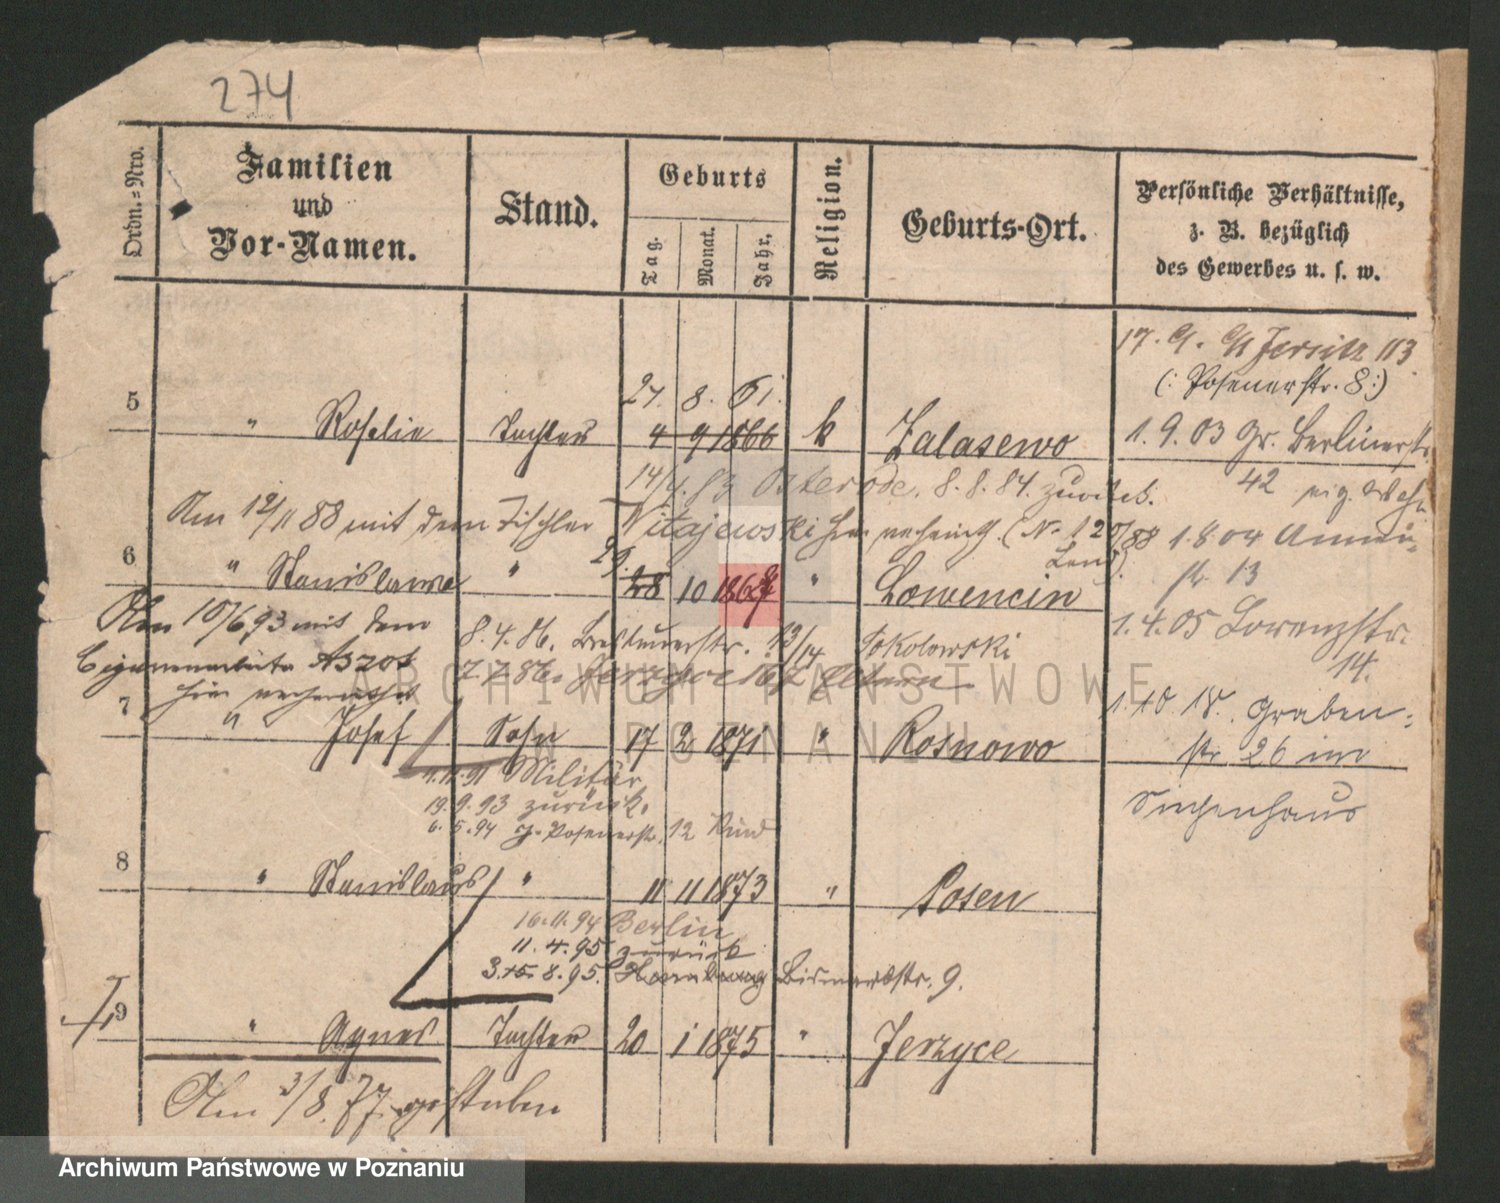 274
Ordn.=Nro.
Familien
und
Vor-Namen.
Stand.
Geburts
Tag.
Monat.
Jahr.
Religion.
Geburts-Ort.
Persönliche Verhältnisse,
z. B. bezüglich
des Gewerbes u. s. w.
17. 9. 91 Jersitz 113
(: Posenerstr. 8 :)
27. 8. 61.
5 " Roselie Tochter 4 9 1866 k Zalasewo 1. 9. 03 Gr. Berlinerstr.
42
83 Osterode. 8. 8. 84. zurück.
Am 12/11 88 mit dem Tischler Witajewski hier verheirath. (N. 120/88 1.8.04
29.
6 " Stanislawa " 28 10 186 " Lowencin 13
Am 10/6 93 mit dem
8. 4. 86. 13/14 Sokolowski
1. 4. 05 Lorenzstr.
14.
hier verheirathet
7. 7. 86. Eltern
7 " Josef Sohn 17 2 1871 " Rosnowo
1. 10. 18. Graben-
str 26 im
Siechenhaus
Militär
19. 9. 93 zurück.
6. 5. 94 Posenerstr. 12 Kind
8 " Stanislaus " 11 11 1873 " Posen
16. 11. 94 Berlin
11. 4. 95 zurück
8. 95. Hamburg Bismarckstr. 9.
9 " Agnes Tochter 20 1 1875 " Jerzyce
Am 3/8. 77. gestorben
ARCHIWUM PAŃSTWOWE
W POZNANIU
Archiwum Państwowe w Poznaniu